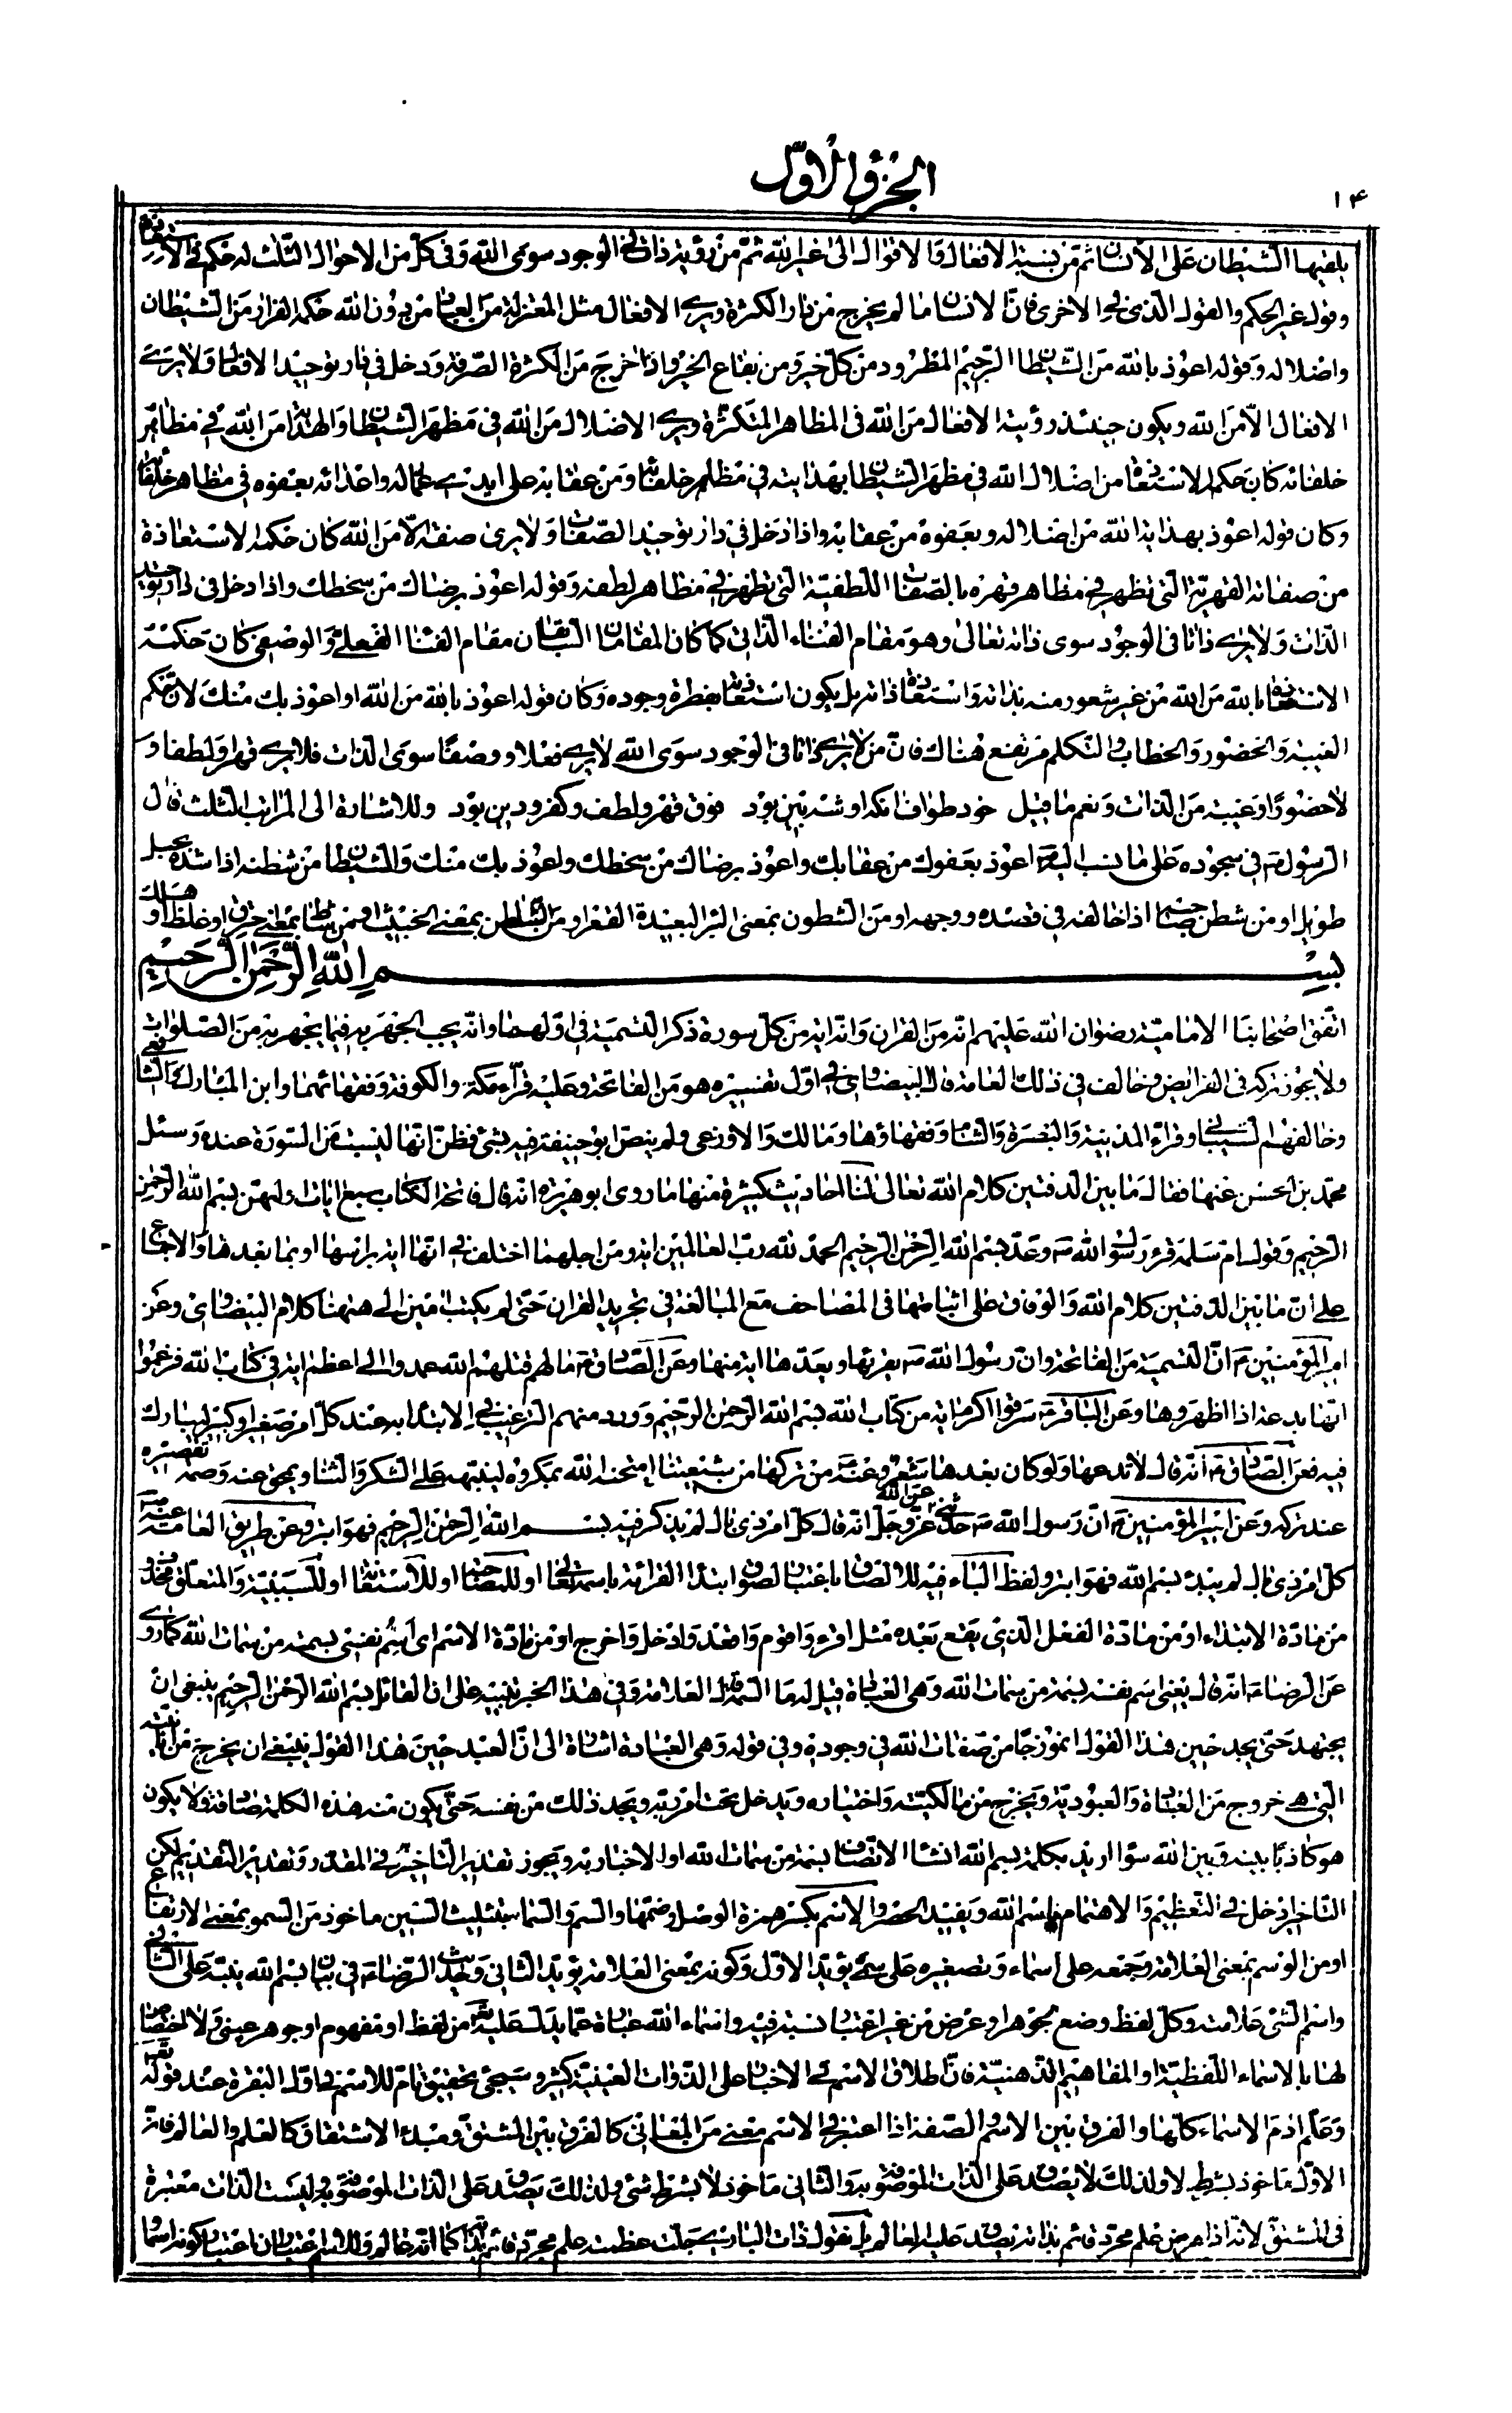 الجزء الاوّل
١۴
يلقيها الشيطان على الانسان ثمّ من نسبة الافعال والاقوال الى غير الله ثمّ من رؤية ذات فى الوجود سوى الله وفى كلّ من الاحوال الثلث له حكم فى الاستعاذة
وقوله غير الحكم والقول الذى فى الاخرى فانّ الانسان ما لم يخرج من دار الكثرة ويرى الافعال مثل المعتزلة من العباد من دون الله حكمه الفرار من الشيطان
واضلاله وقوله اعوذ بالله من الشيطان الرّجيم المطرود من كلّ خير ومن بقاع الخير واذا خرج من الكثرة الصّرفة ودخل فى دار توحيد الافعال ولا يرى
الافعال الّا من الله ويكون حينئذ رؤية الافعال من الله فى المظاهر المتكثّرة ويرى الاضلال من الله فى مظهر الشيطان والهداية من الله فى مظاهر
خلفائه كان حكمه الاستعاذة من اضلال الله فى مظهر الشيطان بهدايته فى مظاهر خلفائه ومن عقابه على ايدى عمّاله واعدائه بعفوه فى مظاهر خلفائه
وكان قوله اعوذ بهداية الله من اضلاله وبعفوه من عقابه واذا دخل فى دار توحيد الصّفات ولا يرى صفة الّا من الله كان حكمه الاستعاذة
من صفاته القهريّة التى تظهر فى مظاهر قهره بالصّفات اللّطفيّة التى تظهر فى مظاهر لطفه وقوله اعوذ برضاك من سخطك واذا دخل فى دار توحيد
الذّات ولا يرى ذاتا فى الوجود سوى ذاته تعالى وهو مقام الفناء الذّاتى كما كان المقامان السّابقان مقام الفناء الفعلى والوصفى كان حكمه
الاستعاذة بالله من الله من غير شعور منه بذاته واستعاذة ذاته بل يكون استعاذته بفطرة وجوده وكان قوله اعوذ بالله من الله او اعوذ بك منك لانّ حكم
الغيبة والحضور والخطاب والتكلّم يرتفع هناك فانّ من لا يرى ذاتا فى الوجود سوى الله لا يرى فعلا ووصفا سوى الذّات فلا يرى قهرا ولطفا و
لا حضورا وغيبة من الذّات ونعم ما قيل خود طواف آنكه او شه بين بود فوق قهر ولطف وكفر ودين بود وللاشارة الى المراتب الثلث قال
الرّسول ص فى سجوده على ما نسب اليه ص اعوذ بعفوك من عقابك واعوذ برضاك من سخطك واعوذ بك منك والشيطان من شطنه اذا شدّه بحبل
طويل او من شطن صاحبه اذا خالفه فى قصده ووجهه او من الشطون بمعنى البئر البعيدة القعر او من الشاطن بمعنى الخبيث او من شاط بمعنى احترق او غلظ او هلك
بسم الله الرّحمن الرّحيم
اتّفق اصحابنا الاماميّة رضوان الله عليهم انّه من القران وانّه اية من كلّ سورة ذكر التسمية فى اوّلها وانّه يجب الجهر به فيما يجهر به من الصّلوات
ولا يجوز تركه فى الفرايض وخالف فى ذلك العامة قال البيضاوى فى اوّل تفسيره هو من الفاتحة وعليه قرّاء مكّة والكوفة وفقهائهما وابن المبارك والشافعى
وخالفهم الشيبانى وقرّاء المدينة والبصرة والشام وفقهاؤها ومالك والاوزعى ولم ينصّ ابو حنيفة فيه بشئ فظنّ انّها ليست من السّورة عنده وسئل
محمّد بن الحسن عنها فقال ما بين الدفتين كلام الله تعالى لنا احاديث كثيرة منها ما روى ابو هريرة انه قال فاتحة الكتاب سبع ايات اوليهنّ بسم الله الرّحمن
الرّحيم وقول امّ سلمة قرء رسول الله ص وعدّ بسم الله الرّحمن الرّحيم الحمد لله ربّ العالمين اية ومن اجلهما اختلف فى انّها اية برأسها او بما بعدها والاجماع
على انّ ما بين الدفتين كلام الله والوفاق على اثباتها فى المصاحف مع المبالغة فى تجريد القران حتّى لم يكتب امين الى ههنا كلام البيضاوى وعن
امير المؤمنين ع انّ التسمية من الفاتحة وان رسول الله ص يقرءها ويعدّها اية منها وعن الصّادق ع ما لهم قتلهم الله عمدوا الى اعظم اية فى كتاب الله فزعموا
انّها بدعة اذا اظهروها وعن الباقر ع سرقوا اكرم اية من كتاب الله بسم الله الرّحمن الرّحيم وورد منهم الترغيب فى الابتداء به عند كلّ امر صغير او كبير ليبارك
فيه فعن الصّادق ع انّه قال لا تدعها ولو كان بعدها شعر وعنه ع من تركها من شيعتنا امتحنه الله بمكروه لينبّهه على الشكر والثناء ويمحق عنه وصمة تقصيره
عند تركه وعن امير المؤمنين ع انّ رسول الله ص حدّثنى عن الله عزّ وجلّ انّه قال كلّ امر ذى بال لم يذكر فيه بسم الله الرّحمن الرّحيم فهو ابتر وعن طريق العامة عنه ص
كلّ امر ذى بال لم يبدء ببسم الله فهو ابتر ولفظ الباء فيه للالصاق باعتبار لصوق ابتداء القرائة باسمه تعالى او للمصاحبة او للاستعانة او للسببيّة والمتعلق محذوف
من مادّة الابتداء او من مادّة الفعل الذى يقع بعده مثل اقرء واقوم واقعد وادخل واخرج او من مادّة الاسم اى اسم نفسى بسمة من سمات الله كما روى
عن الرضا ع انّه قال يعنى اسم نفسى بسمة من سمات الله وهى العبادة قيل له ما السّمة قال العلامة وفى هذا الخبر تنبيه على ان القائل بسم الله الرّحمن الرّحيم ينبغى ان
يجتهد حتى يجد حين هذا القول انموذجا من صفات الله فى وجوده وفى قوله وهى العبادة اشارة الى انّ العبد حين هذا القول ينبغى ان يخرج من انانيّته
التى هى خروج من العبادة والعبوديّة ويخرج من مالكيّته واختياره ويدخل تحت امر ربّه ويجد ذلك من نفسه حتّى يكون منه هذه الكلمة صادقة ولا يكون
هو كاذبا بينه وبين الله سواء اريد بكلمة بسم الله انشاء الاتّصاف بسمة من سمات الله او الاخبار به ويجوز تقدير التّاخير فى المقدر وتقدير التقديم لكن
التّاخير ادخل فى التّعظيم والاهتمام باسم الله ويفيد الحصر والاسم بكسر همزة الوصل وضمّها والسم والسّما بتثليث السّين ماخوذ من السّمو بمعنى الارتفاع
او من الوسم بمعنى العلامة وجمعه على اسماء وتصغيره على سمىّ يؤيّد الاوّل وكونه بمعنى العلامة يؤيّد الثانى وحديث الرّضا ع فى بيان بسم الله ينبّه على الثانى
واسم الشئ علامته وكلّ لفظ وضع لجوهر او عرض من غير اعتبار نسبة فيه واسماء الله عبارة عمّا يدلّ عليه تعالى من لفظ او مفهوم او جوهر عينى ولا اختصاص
لها بالاسماء اللّفظيّة او المفاهيم الذّهنيّة فانّ اطلاق الاسم فى الاخبار على الذّوات العينيّة كثير وسيجئ تحقيق تام للاسم فى اوّل البقرة عند قوله تعالى
وعلّم ادم الاسماء كلّها والفرق بين الاسم والصفة اذا اعتبر فى الاسم معنى من المعانى كالفرق بين المشتقّ ومبدء الاشتقاق كالعلم والعالم فانّ
الاوّل ماخوذ بشرط لا ولذلك لا يصدق على الذّات الموصوفة به والثّانى ماخوذ لا بشرط شئ ولذلك يصدق على الذّات الموصوفة به وليست الذّات معتبرة
فى المشتقّ لانّه اذا فرض علم مجرّد قائم بذاته يصدق عليه العالم بل نقول ذات البارى جلّت عظمته علم مجرّد قائم بذاته كما انّه عالم وللاسم اعتباران اعتبار كونه اسما و